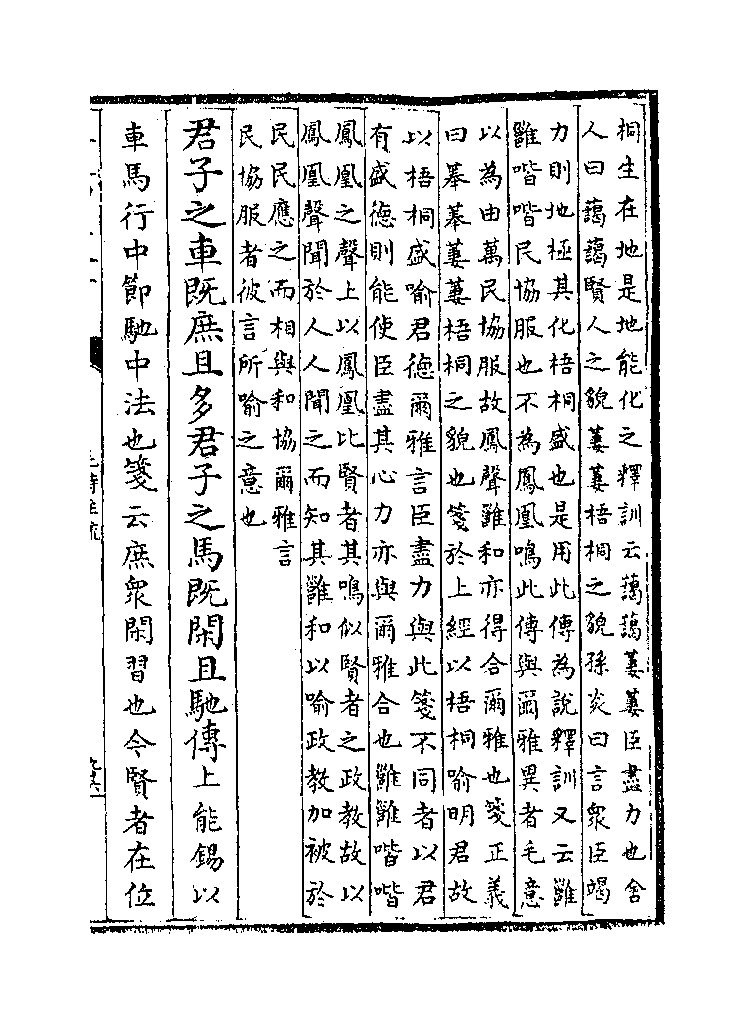 桐生在地是地能化之釋訓云藹藹萋萋臣盡力也舍
人曰藹藹賢人之貌萋萋梧桐之貌孫炎曰言衆臣竭
力則地極其化梧桐盛也是用此傳為說釋訓又云雝
雝喈喈民協服也不為鳳凰鳴此傳與爾雅異者毛意
以為由萬民協服故鳳聲雝和亦得合爾雅也箋正義
曰菶菶萋萋梧桐之貌也箋於上經以梧桐喻明君故
以梧桐盛喻君德爾雅言臣盡力與此箋不同者以君
有盛德則能使臣盡其心力亦與爾雅合也雝雝喈喈
鳳凰之聲上以鳳凰比賢者其鳴似賢者之政教故以
鳳凰聲聞於人人聞之而知其雝和以喻政教加被於
民民應之而相與和協爾雅言
民協服者彼言所喻之意也
君子之車既庶且多君子之馬既閑且馳傳上能錫以
車馬行中節馳中法也箋云庶衆閑習也今賢者在位